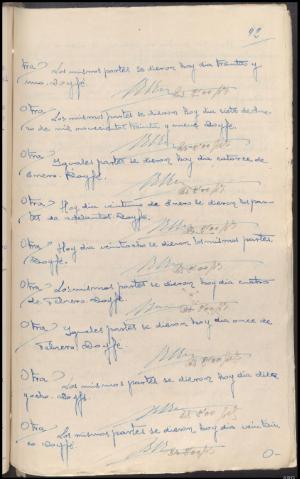 92
Otra? Los mismos partes se dieron hoy dia treinta y
uno. Doy fé.
Otra? Los mismos partes se dieron hoy dia siete de Ene-
ro de mil novecientos treinta y nueve. Doy fe.
Otra? Iguales partes se dieron hoy dia catorce de
Enero. Doy fé.
Otra? Hoy dia veintiuno de Enero se dieron los par-
tes de adelantos. Doy fe.
Otra? Hoy dia veintiocho se dieron los mismos partes.
Doy fe.
Otra? Los mismos partes se dieron hoy dia cuatro
de Febrero. Doy fé.
Otra? Iguales partes se dieron hoy dia once de
Febrero. Doy fé.
Otra? Los mismos partes se dieron hoy dia diez
y ocho. Doy fe.
Otra? Los mismos partes se dieron hoy dia veintcin-
co. Doy fe.